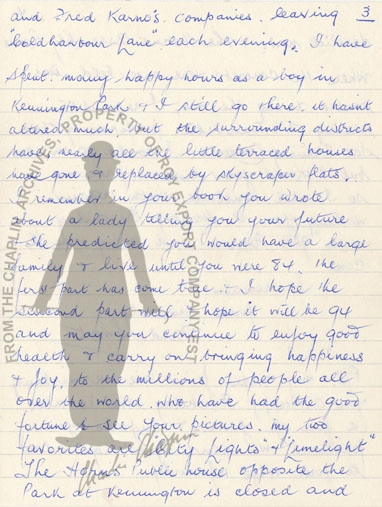 and Fred Karno's companies. leaving 3
"Coldharbour Lane" each evening. I have
spent many happy hours as a boy in
Kennington Park & I still go there. it hasn't
altered much, but the surrounding districts
have nearly all the little terraced houses
have gone & replaced by skyscraper flats.
I remember in your book you wrote
about a lady telling you your future
& she predicted you would have a large
family & live until you were 84. The
first part has come true. & I hope the
second part will hope it will be 94
and may you continue to enjoy good
health & carry on bringing happiness
& joy. to the millions of people all
over the world. who have had the good
fortune to see your pictures. my two
favorites are "City Lights" & "Limelight"
The Public house opposite the
Park at Kennington is closed and
FROM THE CHAPLIN ARCHIVES, PROPERTY OF ROY EXPORT COMPANY EST
Charlie Chaplin